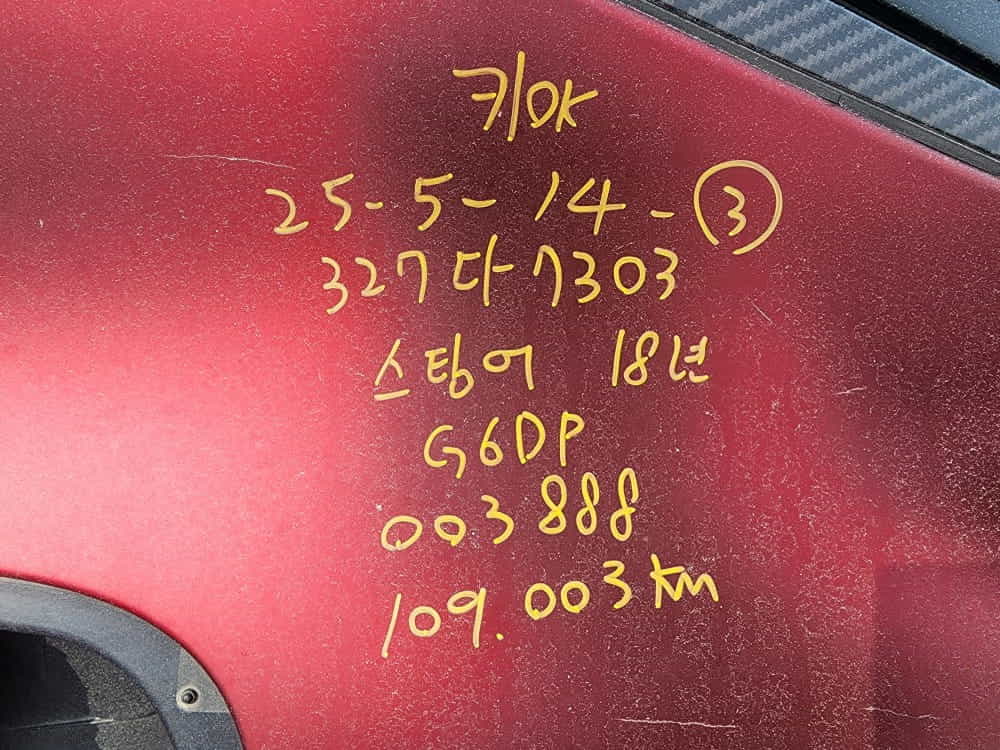 키OK
25-5-14-③
327다7303
스팅어 18년
G6DP
003888
109.003km